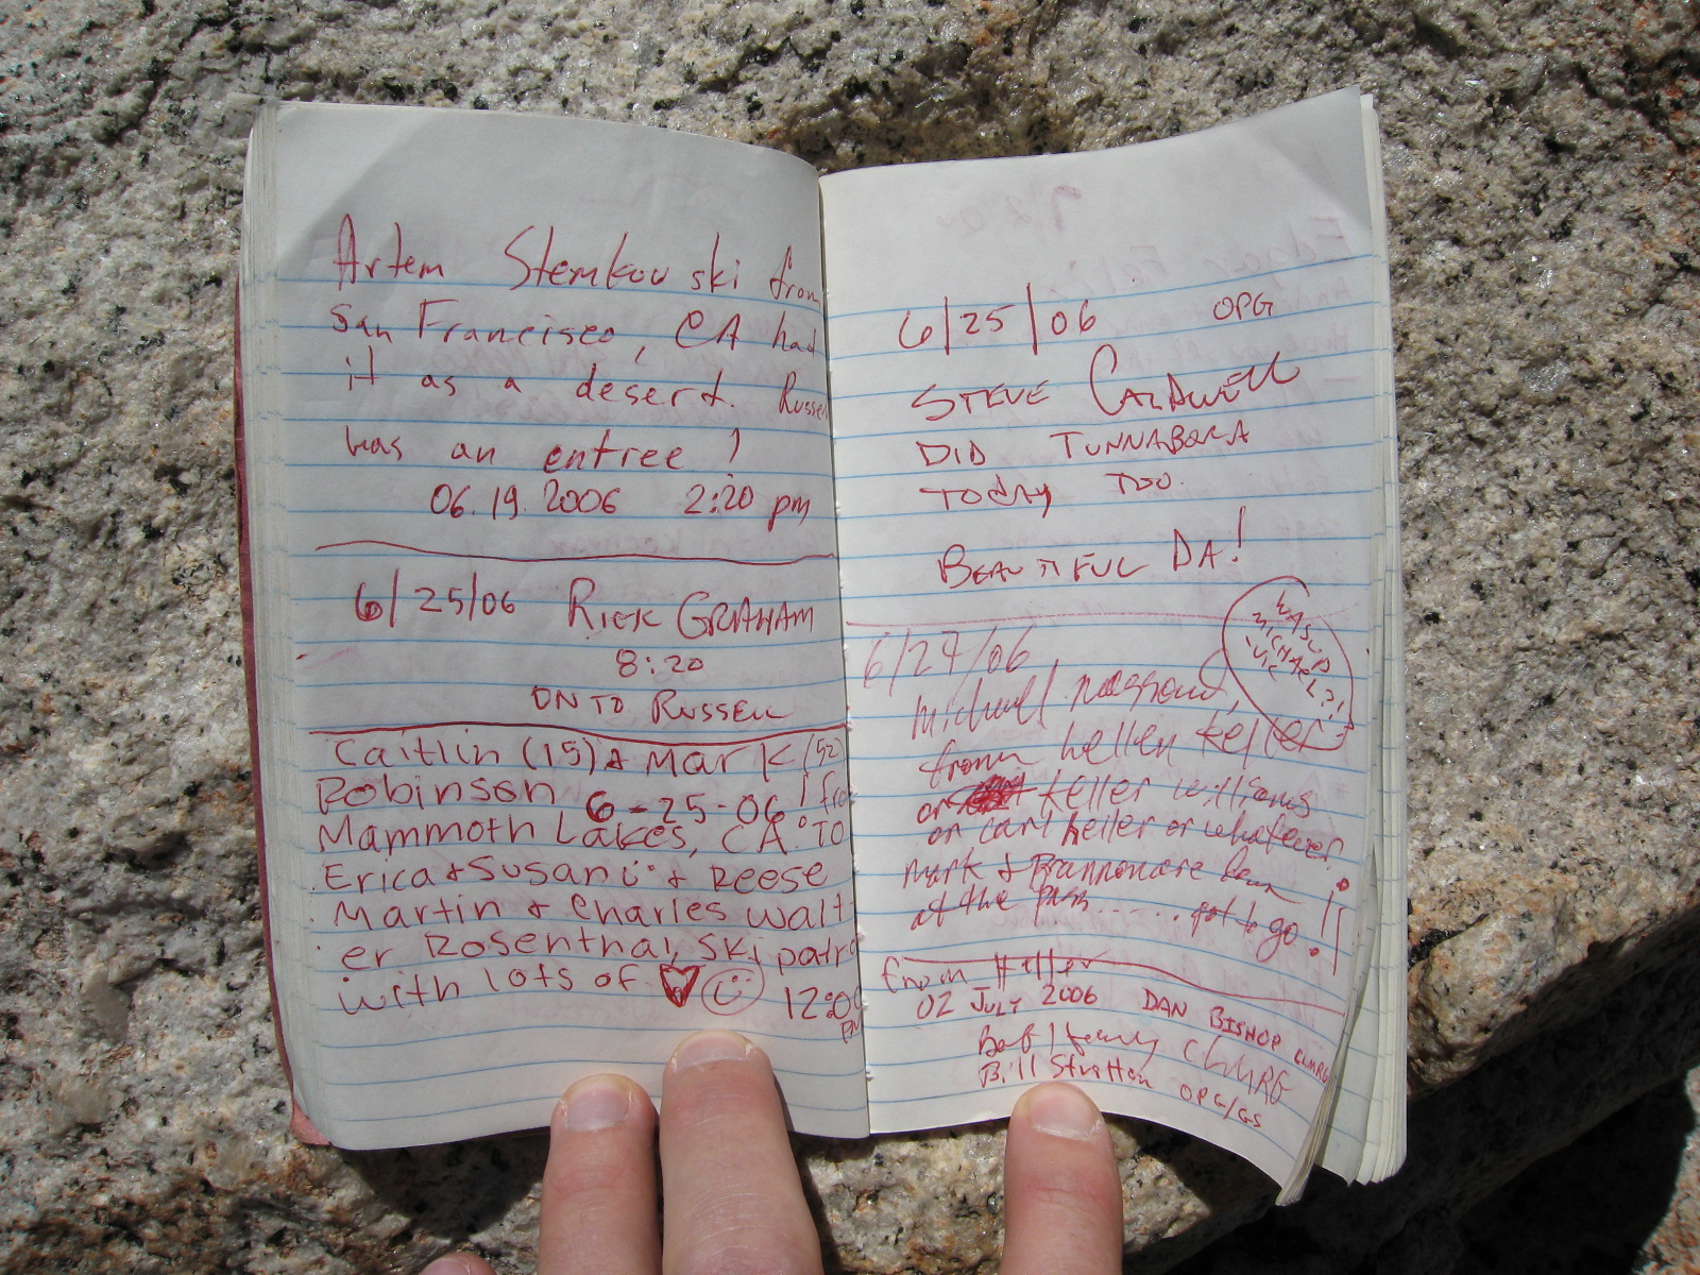 Artem Stemkovski from
San Francisco, CA had
it as a desert. Russell
was an entree!
06.19.2006 2:20 pm
6/25/06 RICK GRAHAM
8:20
ON TO RUSSELL
Caitlin (15) & Mark (52)
Robinson 6-25-06! fro
Mammoth Lakes, CA. TO
Erica & Susan & Reese
Martin & Charles Walt
er Rosenthal, ski patro
with lots of
12:00
PM
6/25/06 OPG
STEVE CALDWELL
DID TUNNABORA
TODAY TOO.
BEAUTIFUL DA!
6/27/06
WAS UP
MICHAEL?!
-VIC
michael
from hellen keller
or keller williams
or carl heller or whatever
mark & Brannon are
at the pass...... got to go!!
from Heller
02 JULY 2006 DAN BISHOP CLMRG
CLMRG
Bill Stratton OPG/GS